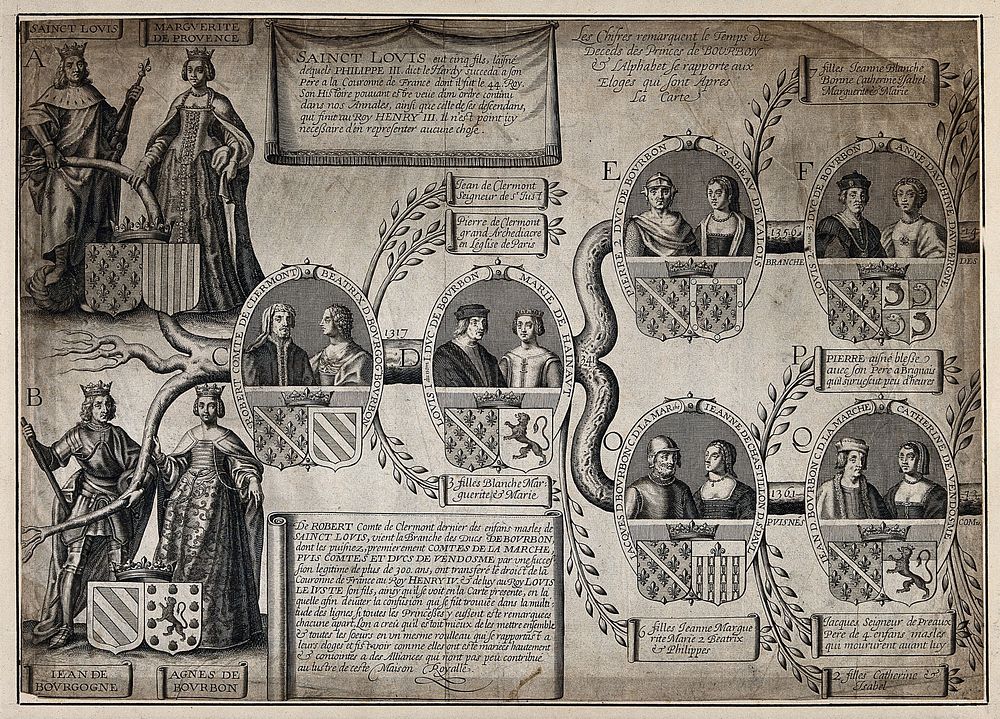 SAINCT LOVIS
MARGVERITE
DE PROVENCE
A
SAINCT LOVIS eut cinq fils, laisné
desquels PHILIPPE III. dict le Hardy succeda a son
Pere a la Couronne de France dont il fut le 44. Roy.
Son Histoire pouuant estre veue dun ordre continu
dans nos Annales, ainsi que celle de ses descendans,
qui finit au Roy HENRY III. Il n'est point icy
necessaire d'en representer aucune chose.
Les Chifres remarquent le Temps du
Deceds des Princes de BOVRBON
& L'Alphabet se rapporte aux
Eloges qui sont Apres
La Carte
7 filles Jeanne Blanche
Bonne Catherine Ysabel
Marguerite & Marie
Jean de Clermont
Seigneur de St. Just
Pierre de Clermont
grand Archediacre
en Leglise de Paris
E
PIERRE 2 DVC DE BOVRBON
YSABEAV DE VALOIS
1356
BRANCHE
F
LOVIS 2 DVC DE BOVRBON
ANNE DAVPHINE DAVVERGNE
DES
C
ROBERT COMTE DE CLERMONT
BEATRIX D BOVRGOGN BOVRBON
1317
D
LOVIS I. DVC DE BOVRBON
MARIE DE HAINAVT
1341
P
PIERRE aisné blesse
auec son Pere a Brignais
qui suruescut peu d'heures
B
O
JACQVES D BOVRBON C. D LA MARche
JEANNE DE CHASTILLON S. PAVL
1361
PVISNÉS
Q
JEAN D BOVRBON C. D LA MARCHE
CATHERINE DE VENDOSME
COM
3 filles Blanche Mar-
guerite & Marie
De ROBERT Comte de Clermont dernier des enfans masles de
SAINCT LOVIS, vient la Branche des Ducs DE BOVRBON,
dont les puisnez, premierement COMTES DE LA MARCHE,
PVIS COMTES ET DVCS DE VENDOSME par vne succes-
sion legitime de plus de 300. ans, ont transferé le droict de la
Couronne de France au Roy HENRY IV. & de luy au Roy LOVIS
LE IVSTE son fils, ainsy qu'il se voit en la Carte presente, en la
quelle afin d'euiter la confusion qui se fut trouuée dans la multi-
tude des lignes si toutes les Princesses y eussent esté remarquées
chacune apart, Lon a creu qu'il estoit mieux de les mettre ensemble
& toutes les soeurs en vn mesme roulleau qui se rapportast a
leurs eloges et fist voir comme elles ont esté mariées hautement
& conjointes a des Alliances qui n'ont pas peu contribué
au lustre de ceste Maison Royalle.
6 filles Jeanne Margue
rite Marie 2 Beatrix
& Philippes
Jacques Seigneur de Preaux
Pere de 4 enfans masles
qui moururent auant luy
2 filles Catherine &
Isabel
IEAN DE
BOVRGOGNE
AGNES DE
BOVRBON